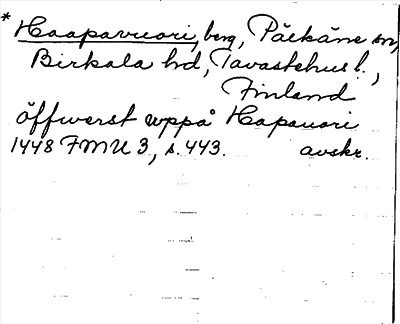 * Haapavuori, berg, Pälkäne sn,
Birkala hd, Tavastehus l.,
Finland
öffwerst uppå Hapauori
1448 FMU 3, s. 443. avskr.